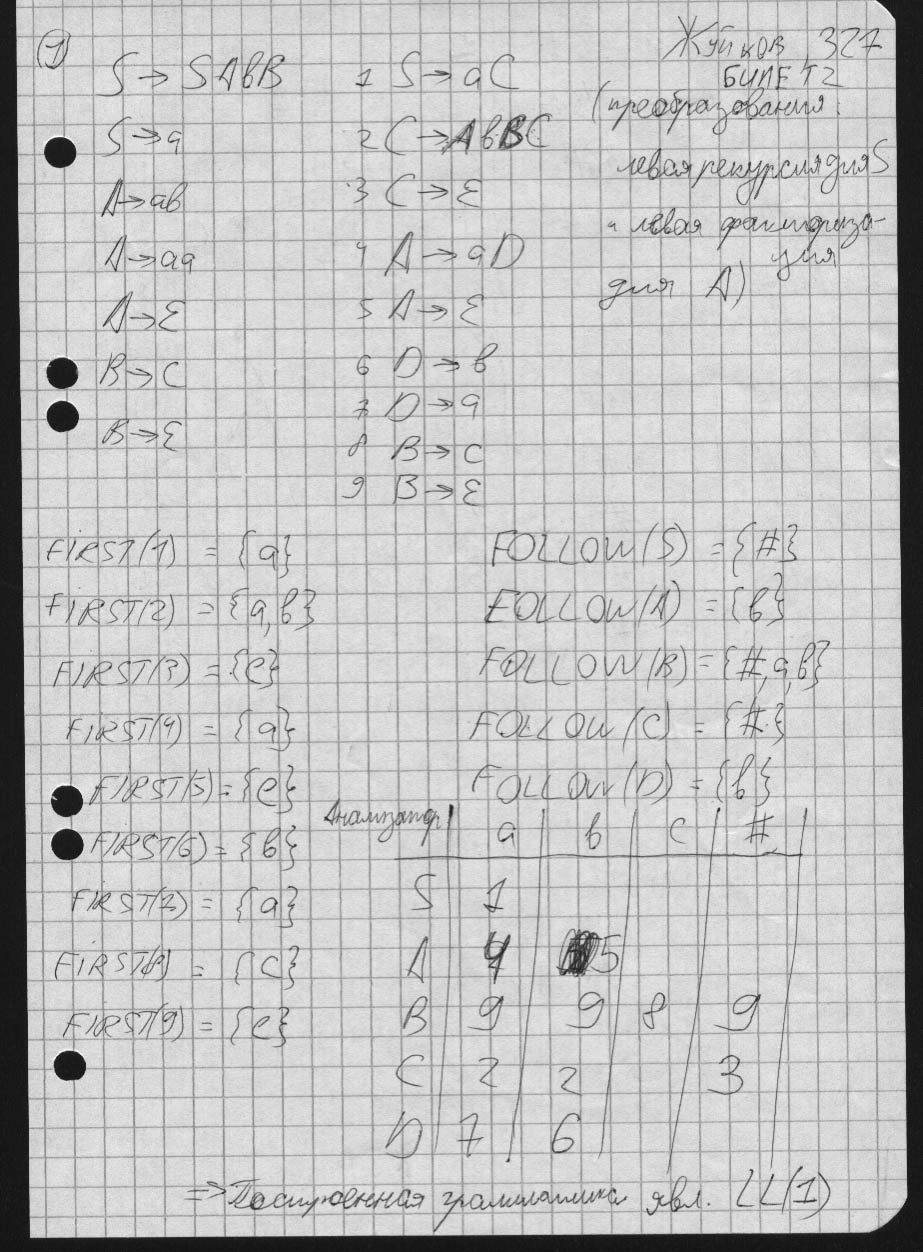 1
Жуйков 327
БИЛЕТ 2
S → SAbB
S → a
A → ab
A → aa
A → ε
B → c
B → ε
1 S → aC
2 C → AbBC
3 C → ε
4 A → aD
5 A → ε
6 D → b
7 D → a
8 B → c
9 B → ε
(преобразования:
левая рекурсия для S
и левая факториза-
ция
для A)
FIRST(1) = {a}
FIRST(2) = {a,b}
FIRST(3) = {e}
FIRST(4) = {a}
FIRST(5) = {e}
FIRST(6) = {b}
FIRST(7) = {a}
FIRST(8) = {c}
FIRST(9) = {e}
FOLLOW(S) = {#}
FOLLOW(A) = {b}
FOLLOW(B) = {#,a,b}
FOLLOW(C) = {#}
FOLLOW(D) = {b}
Анализатор a b c #
S 1
A 4 5
B 9 9 8 9
C 2 2 3
D 7 6
=> Построенная грамматика явл. LL(1)